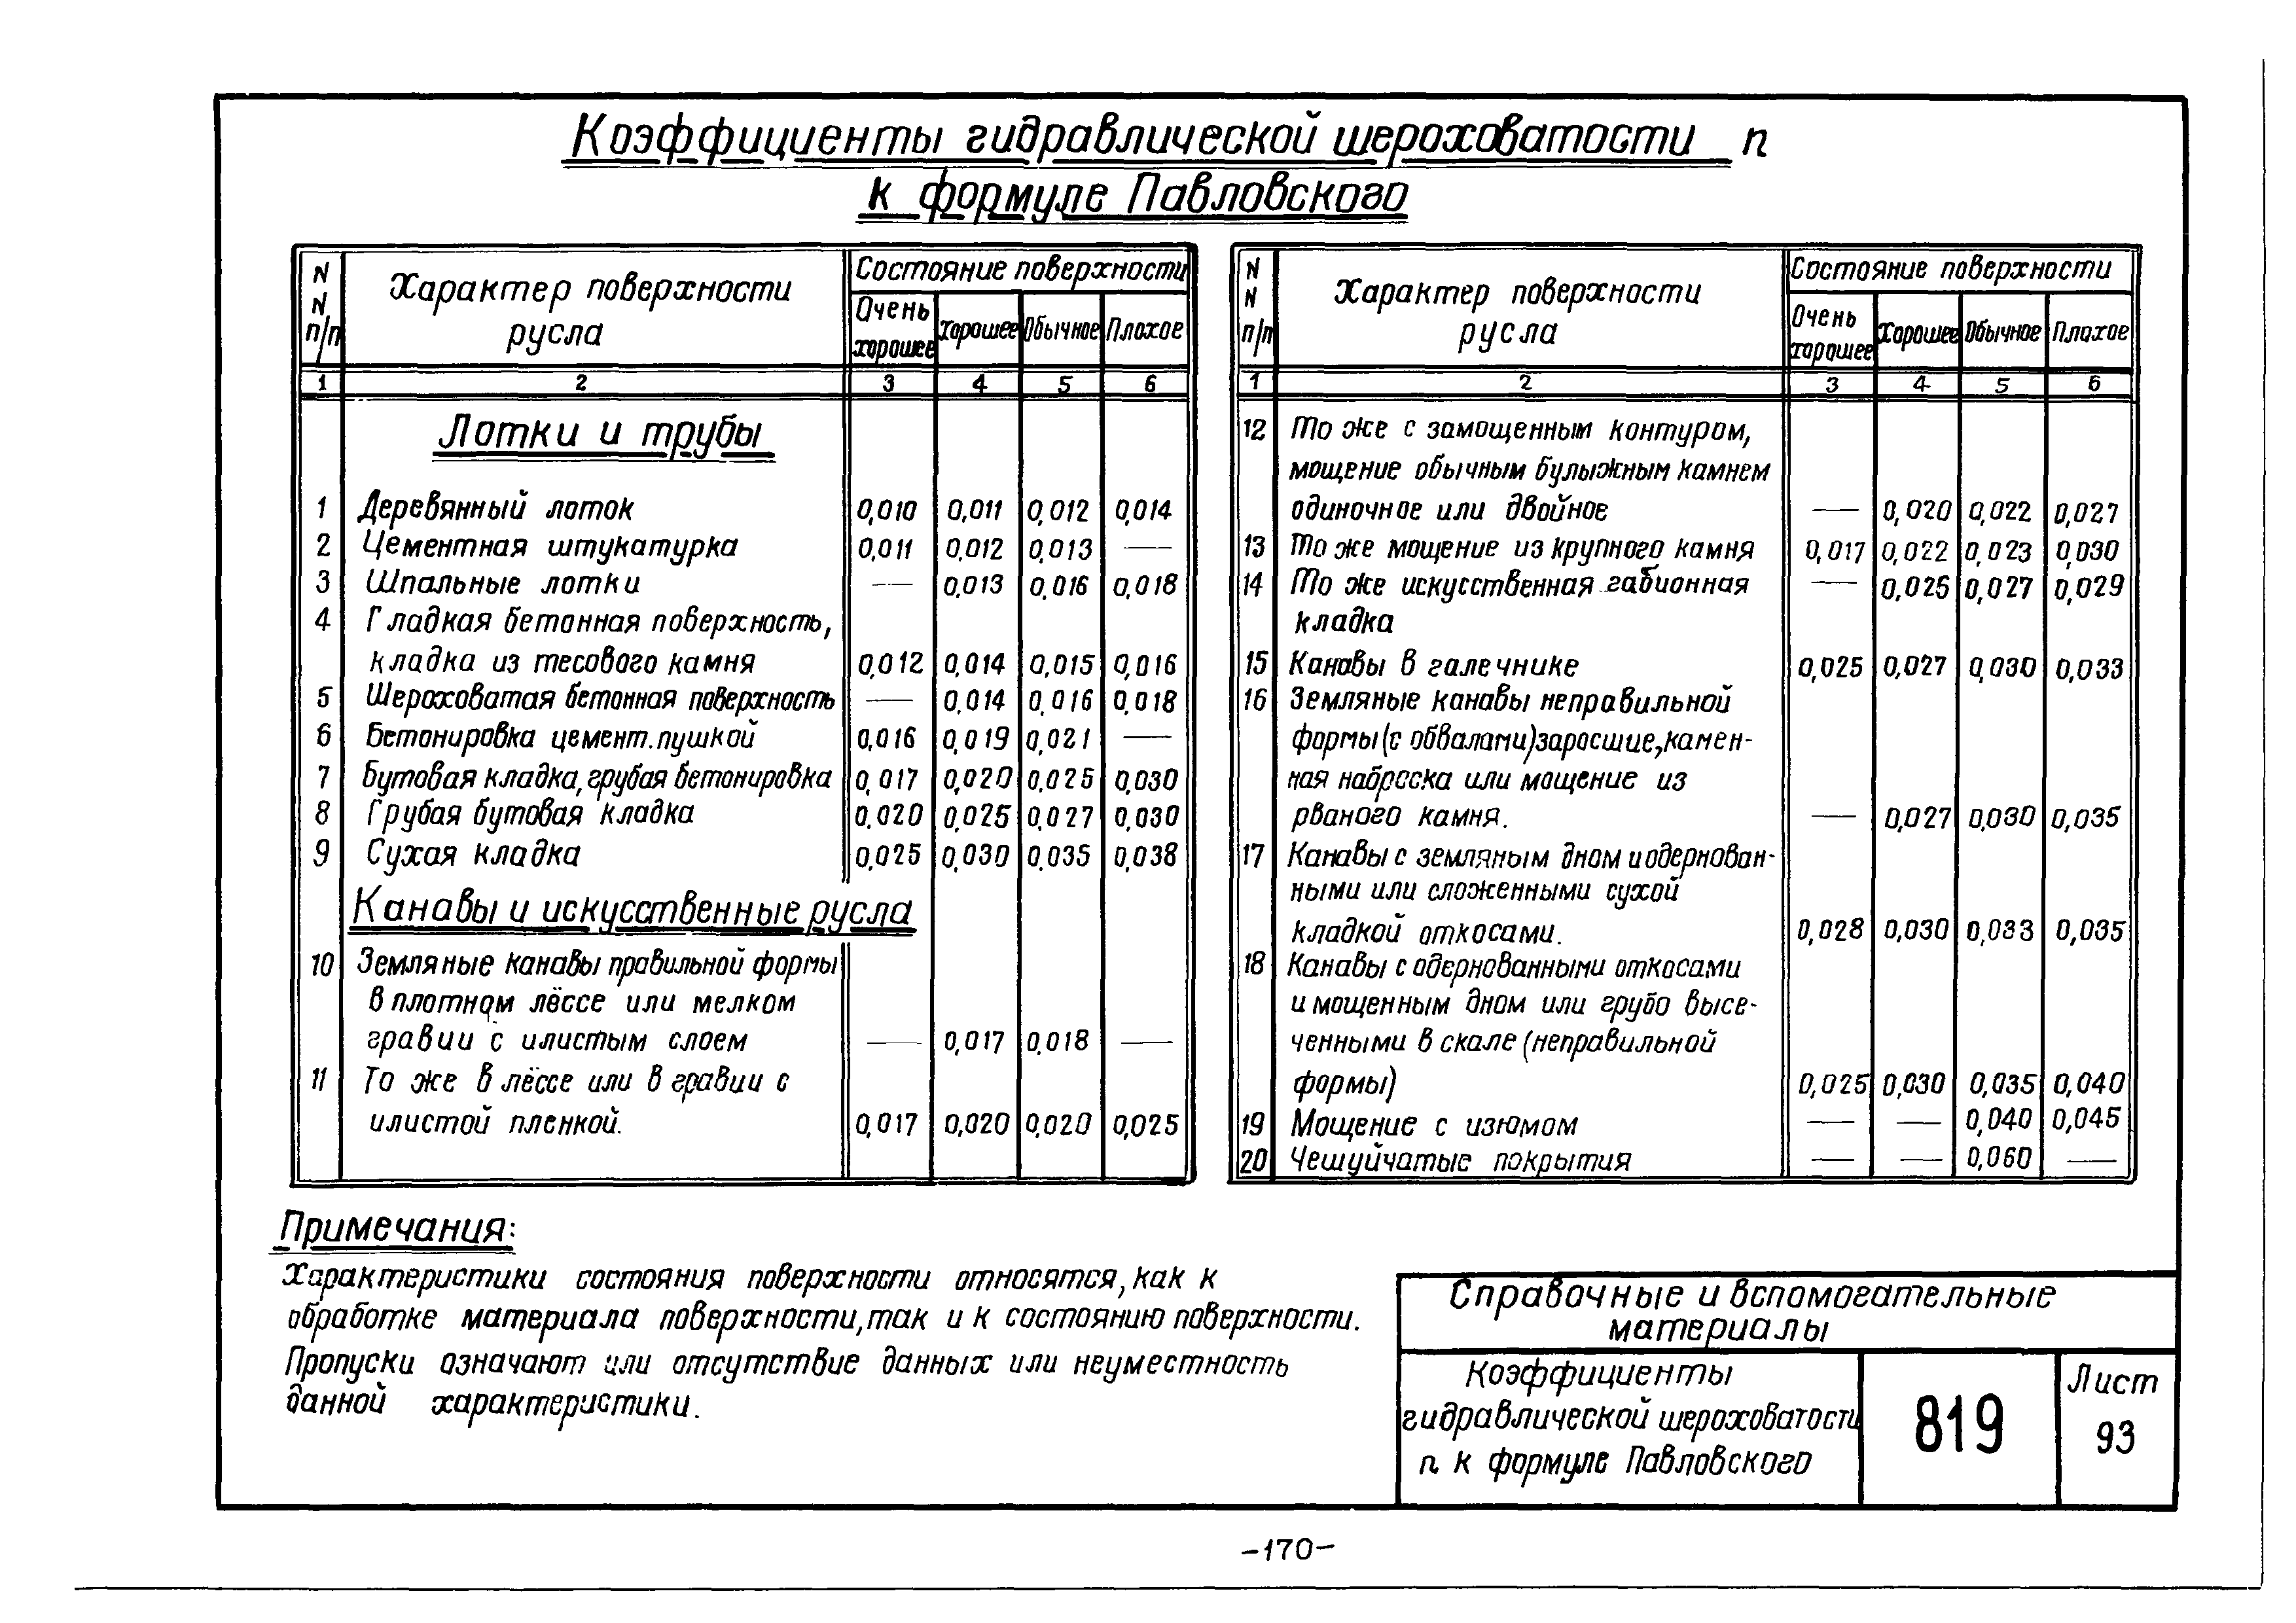 Коэффициенты гидравлической шероховатости n
к формуле Павловского
N N п/п | Характер поверхности русла | Состояние поверхности
Очень хорошее | Хорошее | Обычное | Плохое
1 2 3 4 5 6
Лотки и трубы
1 Деревянный лоток 0,010 0,011 0,012 0,014
2 Цементная штукатурка 0,011 0,012 0,013 —
3 Шпальные лотки — 0,013 0,016 0,018
4 Гладкая бетонная поверхность,
кладка из тесового камня 0,012 0,014 0,015 0,016
5 Шероховатая бетонная поверхность — 0,014 0,016 0,018
6 Бетонировка цемент. пушкой 0,016 0,019 0,021 —
7 Бутовая кладка, грубая бетонировка 0,017 0,020 0,025 0,030
8 Грубая бутовая кладка 0,020 0,025 0,027 0,030
9 Сухая кладка 0,025 0,030 0,035 0,038
Канавы и искусственные русла
10 Земляные канавы правильной формы
в плотном лёссе или мелком
гравии с илистым слоем — 0,017 0,018 —
11 То же в лёссе или в гравии с
илистой пленкой. 0,017 0,020 0,020 0,025
N N п/п | Характер поверхности русла | Состояние поверхности
Очень хорошее | Хорошее | Обычное | Плохое
1 2 3 4 5 6
12 То же с замощенным контуром,
мощение обычным булыжным камнем
одиночное или двойное — 0,020 0,022 0,027
13 То же мощение из крупного камня 0,017 0,022 0,023 0,030
14 То же искусственная габионная — 0,025 0,027 0,029
кладка
15 Канавы в галечнике 0,025 0,027 0,030 0,033
16 Земляные канавы неправильной
формы (с обвалами) заросшие, камен-
ная наброска или мощение из
рваного камня. — 0,027 0,030 0,035
17 Канавы с земляным дном и одернован-
ными или сложенными сухой
кладкой откосами. 0,028 0,030 0,033 0,035
18 Канавы с одернованными откосами
и мощенным дном или грубо высе-
ченными в скале (неправильной
формы) 0,025 0,030 0,035 0,040
19 Мощение с изюмом — — 0,040 0,045
20 Чешуйчатые покрытия — — 0,060 —
Примечания:
Характеристики состояния поверхности относятся, как к
обработке материала поверхности, так и к состоянию поверхности.
Пропуски означают или отсутствие данных или неуместность
данной характеристики.
Справочные и вспомогательные
материалы
Коэффициенты
гидравлической шероховатости
n к формуле Павловского
819
Лист
93
-170-